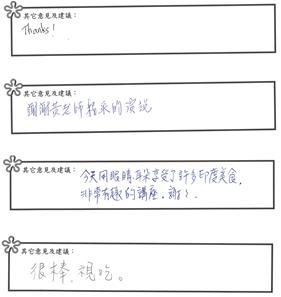 其它意見及建議：
Thanks!
其它意見及建議：
謝謝黃老師精采的演說
其它意見及建議：
今天用眼睛、耳朵享受了許多印度美食,
非常有趣的講座。謝謝。
其它意見及建議：
很棒，視吃。